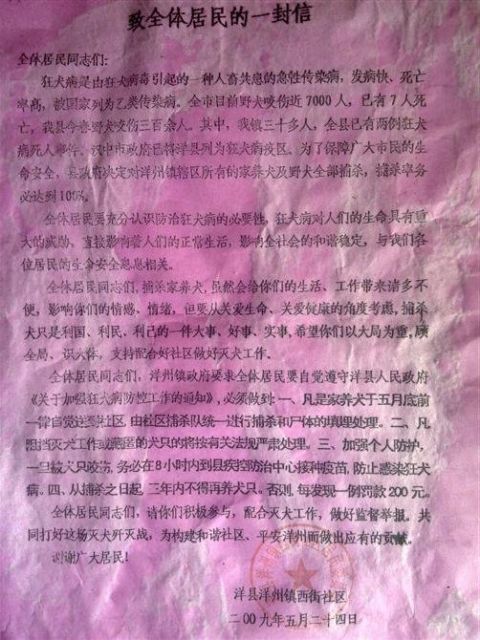 致全体居民的一封信
全体居民同志们:
狂犬病是由狂犬病毒引起的一种人畜共患的急性传染病，发病快、死亡
率高，被国家列为乙类传染病。全市目前野犬咬伤近7000人，已有7人死
亡，我县今春野犬咬伤三百余人。其中，我镇三十多人，全县已有两例狂犬
病死人事件。汉中市政府已将洋县列为狂犬病疫区。为了保障广大市民的生
命安全，县政府决定对洋州镇辖区所有的家养犬及野犬全部捕杀，捕杀率务
必达到100%。
全体居民要充分认识防治狂犬病的必要性，狂犬病对人们的生命具有重
大的威胁，直接影响着人们的正常生活，影响全社会的和谐稳定，与我们各
位居民的生命安全息息相关。
全体居民同志们，捕杀家养犬，虽然会给你们的生活、工作带来诸多不
便，影响你们的情感、情绪，但要从关爱生命、关爱健康的角度考虑，捕杀
犬只是利国、利民、利己的一件大事、好事、实事，希望你们以大局为重，顾
全局、识大体，支持配合好社区做好灭犬工作。
全体居民同志们，洋州镇政府要求全体居民要自觉遵守洋县人民政府
《关于加强狂犬病防控工作的通知》，必须做到：一、凡是家养犬于五月底前
一律自觉送到社区，由社区捕杀队统一进行捕杀和尸体的填埋处理。二、凡
阻挡灭犬工作或藏匿的犬只的将按有关法规严肃处理。三、加强个人防护，
一旦被犬只咬伤，务必在8小时内到县疾控防治中心接种疫苗，防止感染狂犬
病。四、从捕杀之日起，三年内不得再养犬只。否则，每发现一例罚款200元。
全体居民同志们，请你们积极参与，配合灭犬工作，做好监督举报。共
同打好这场灭犬歼灭战，为构建和谐社区、平安洋州而做出应有的贡献。
谢谢广大居民！
洋县洋州镇西街社区
二00九年五月二十四日